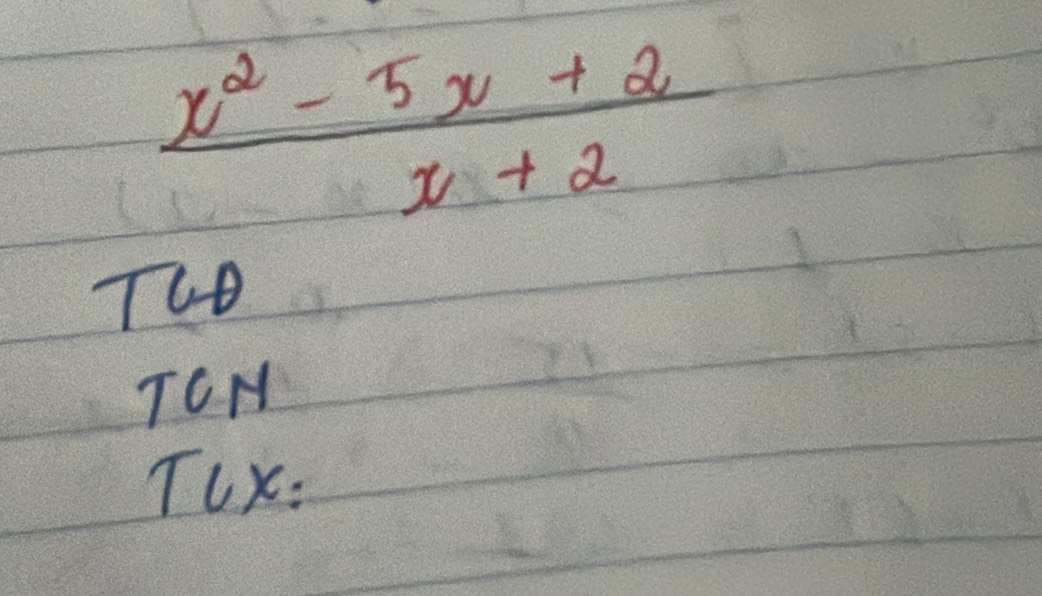 x² - 5x + 2
x + 2
TCĐ
TCN
TCX: